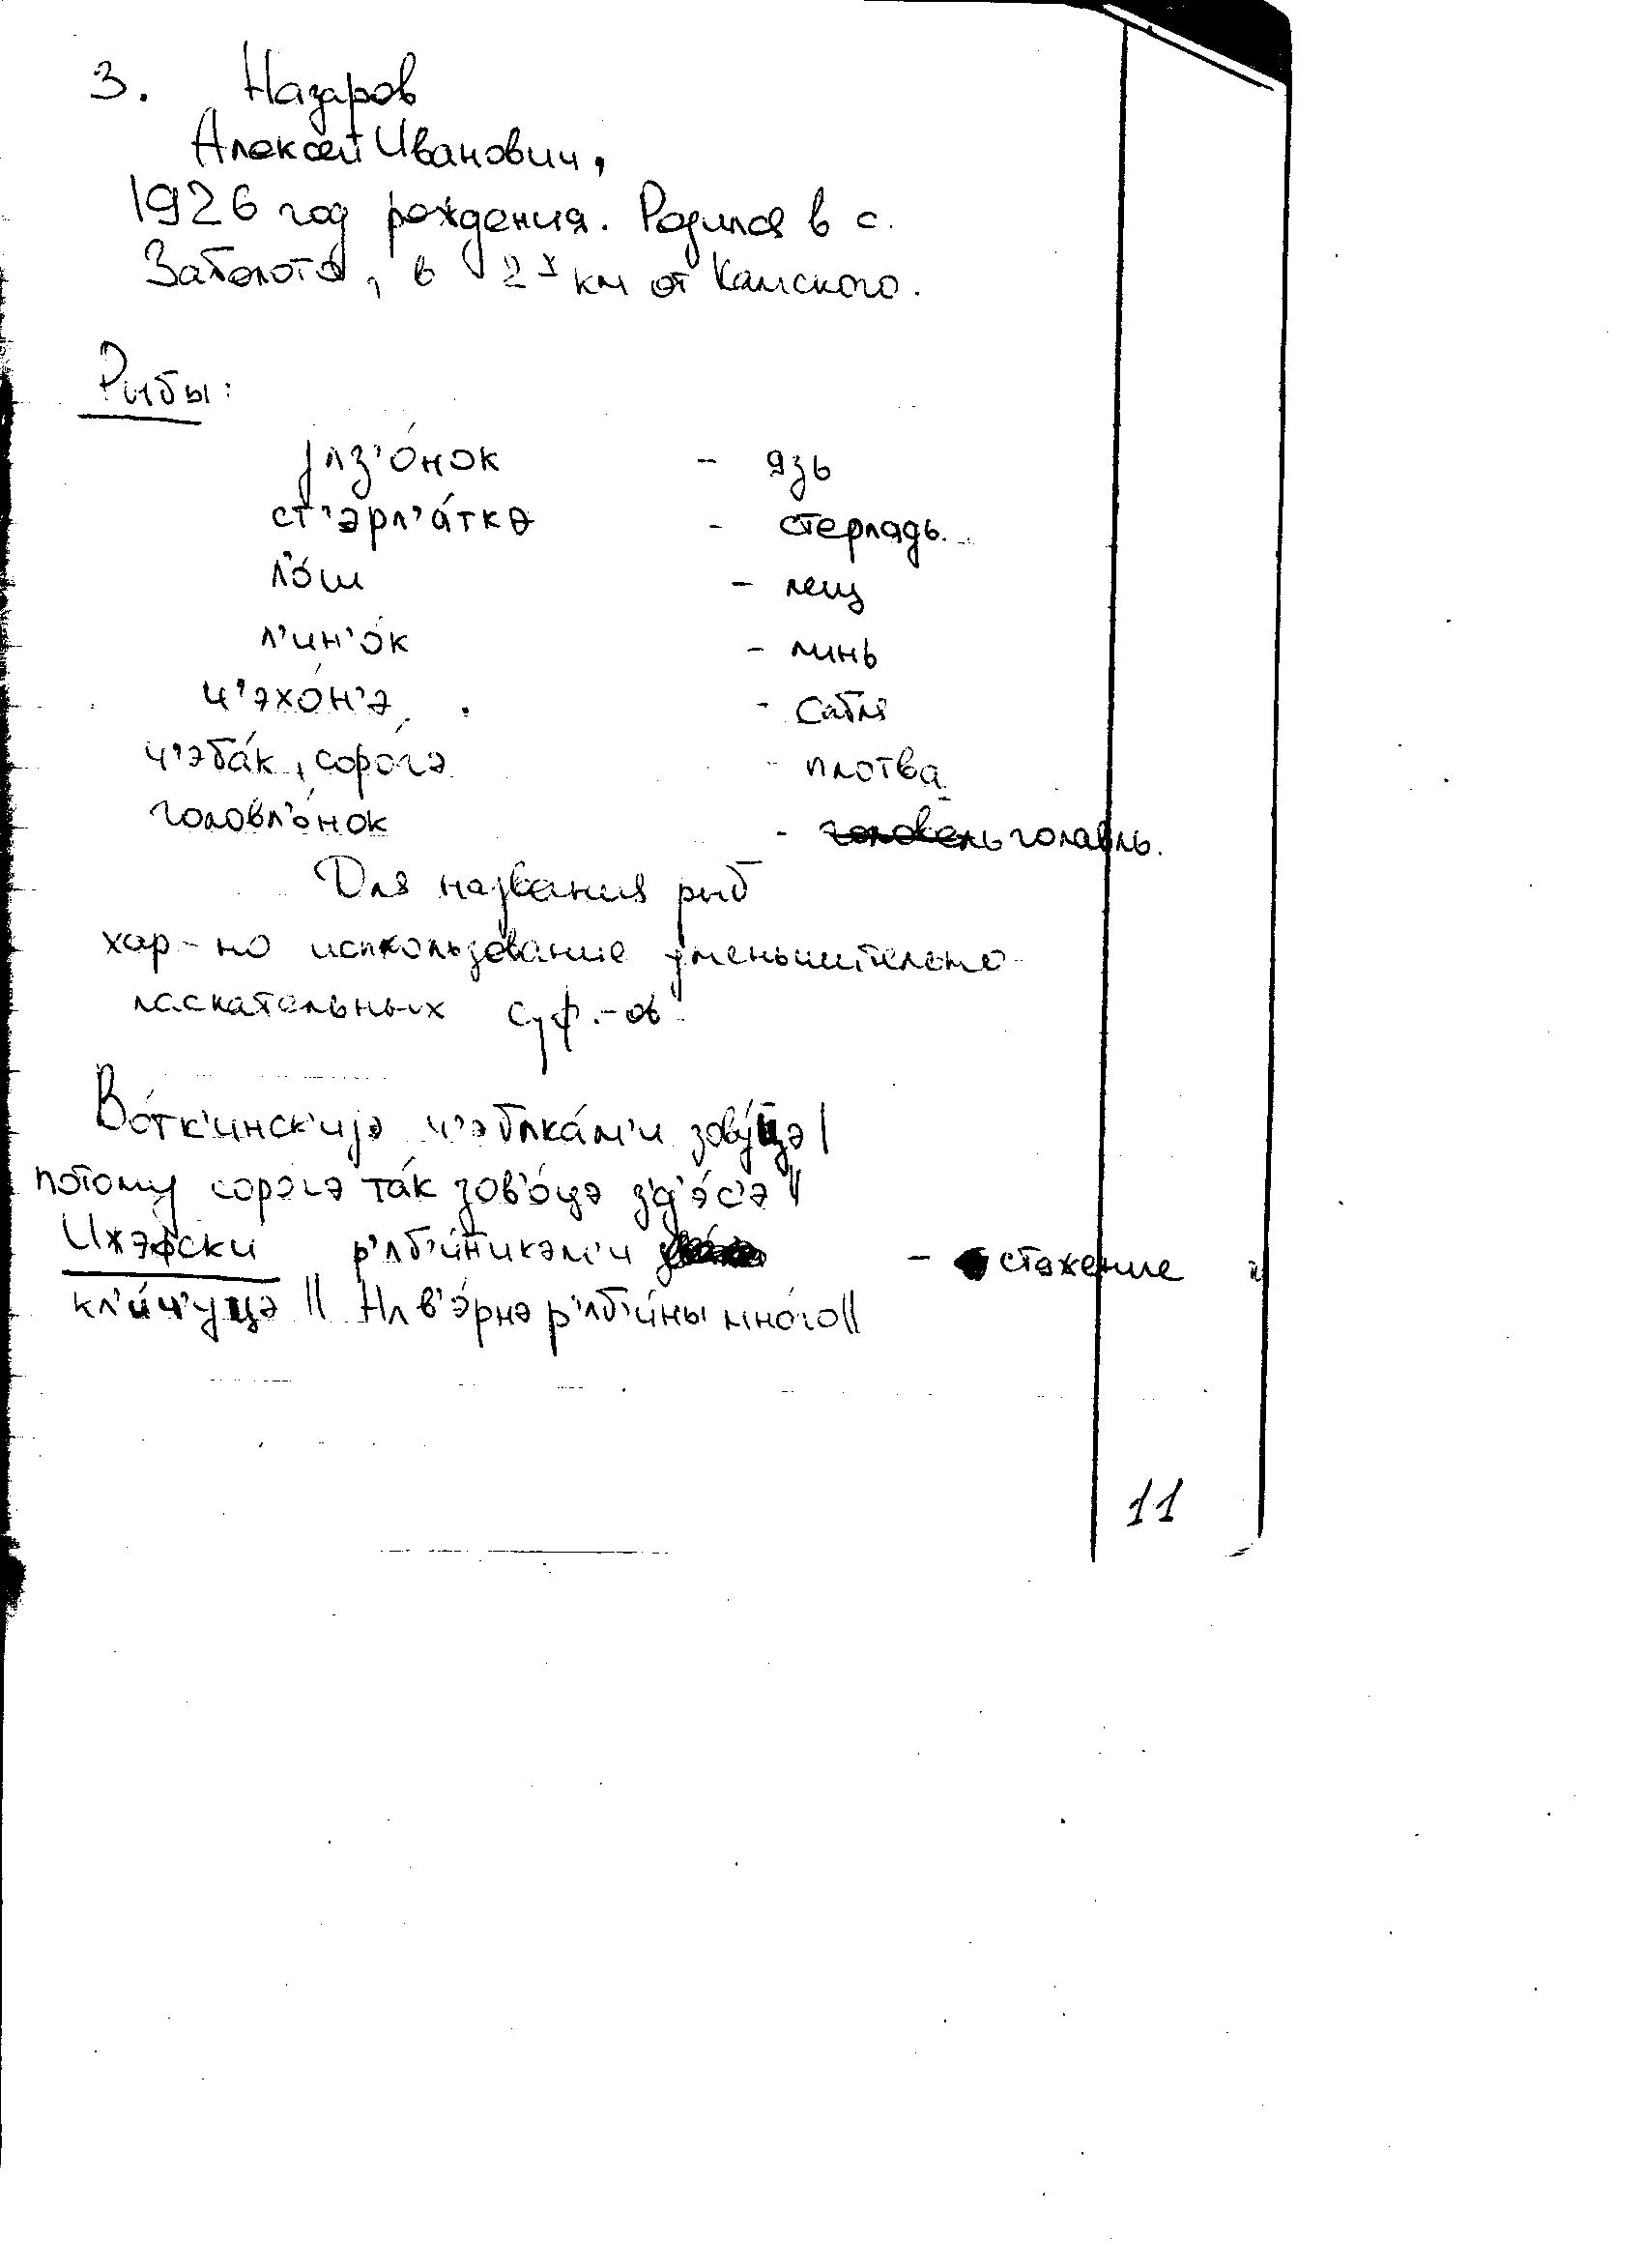 3. Назаров
Алексей Иванович,
1926 год рождения. Родился в с.
Заболото, в 2х км от Камского.
Рыбы:
јʌз'о́нок - язь
ст'эрл'а́ткə - стерлядь.
л'о́ш - лещ
л'ин'о́к - линь
ч'эхо́н'э - сабля
ч'эба́к, соро́гэ - плотва
головл'о́нок - головель голавль.
Для названия рыб
хар-но использование уменьшительно
ласкательных суф.-ов
Во́тк'инск'ијэ ч'эбʌка́м'и зову́цэ |
потому сорэгэ та́к зов'о́цэ з'д'э́с'э ||
Ижэфски р'ʌб'и́никэм'и - стяжение
кл'и́ч'уцэ || Нʌв'э́рнэ р'ʌб'и́ны мно́го ||
11